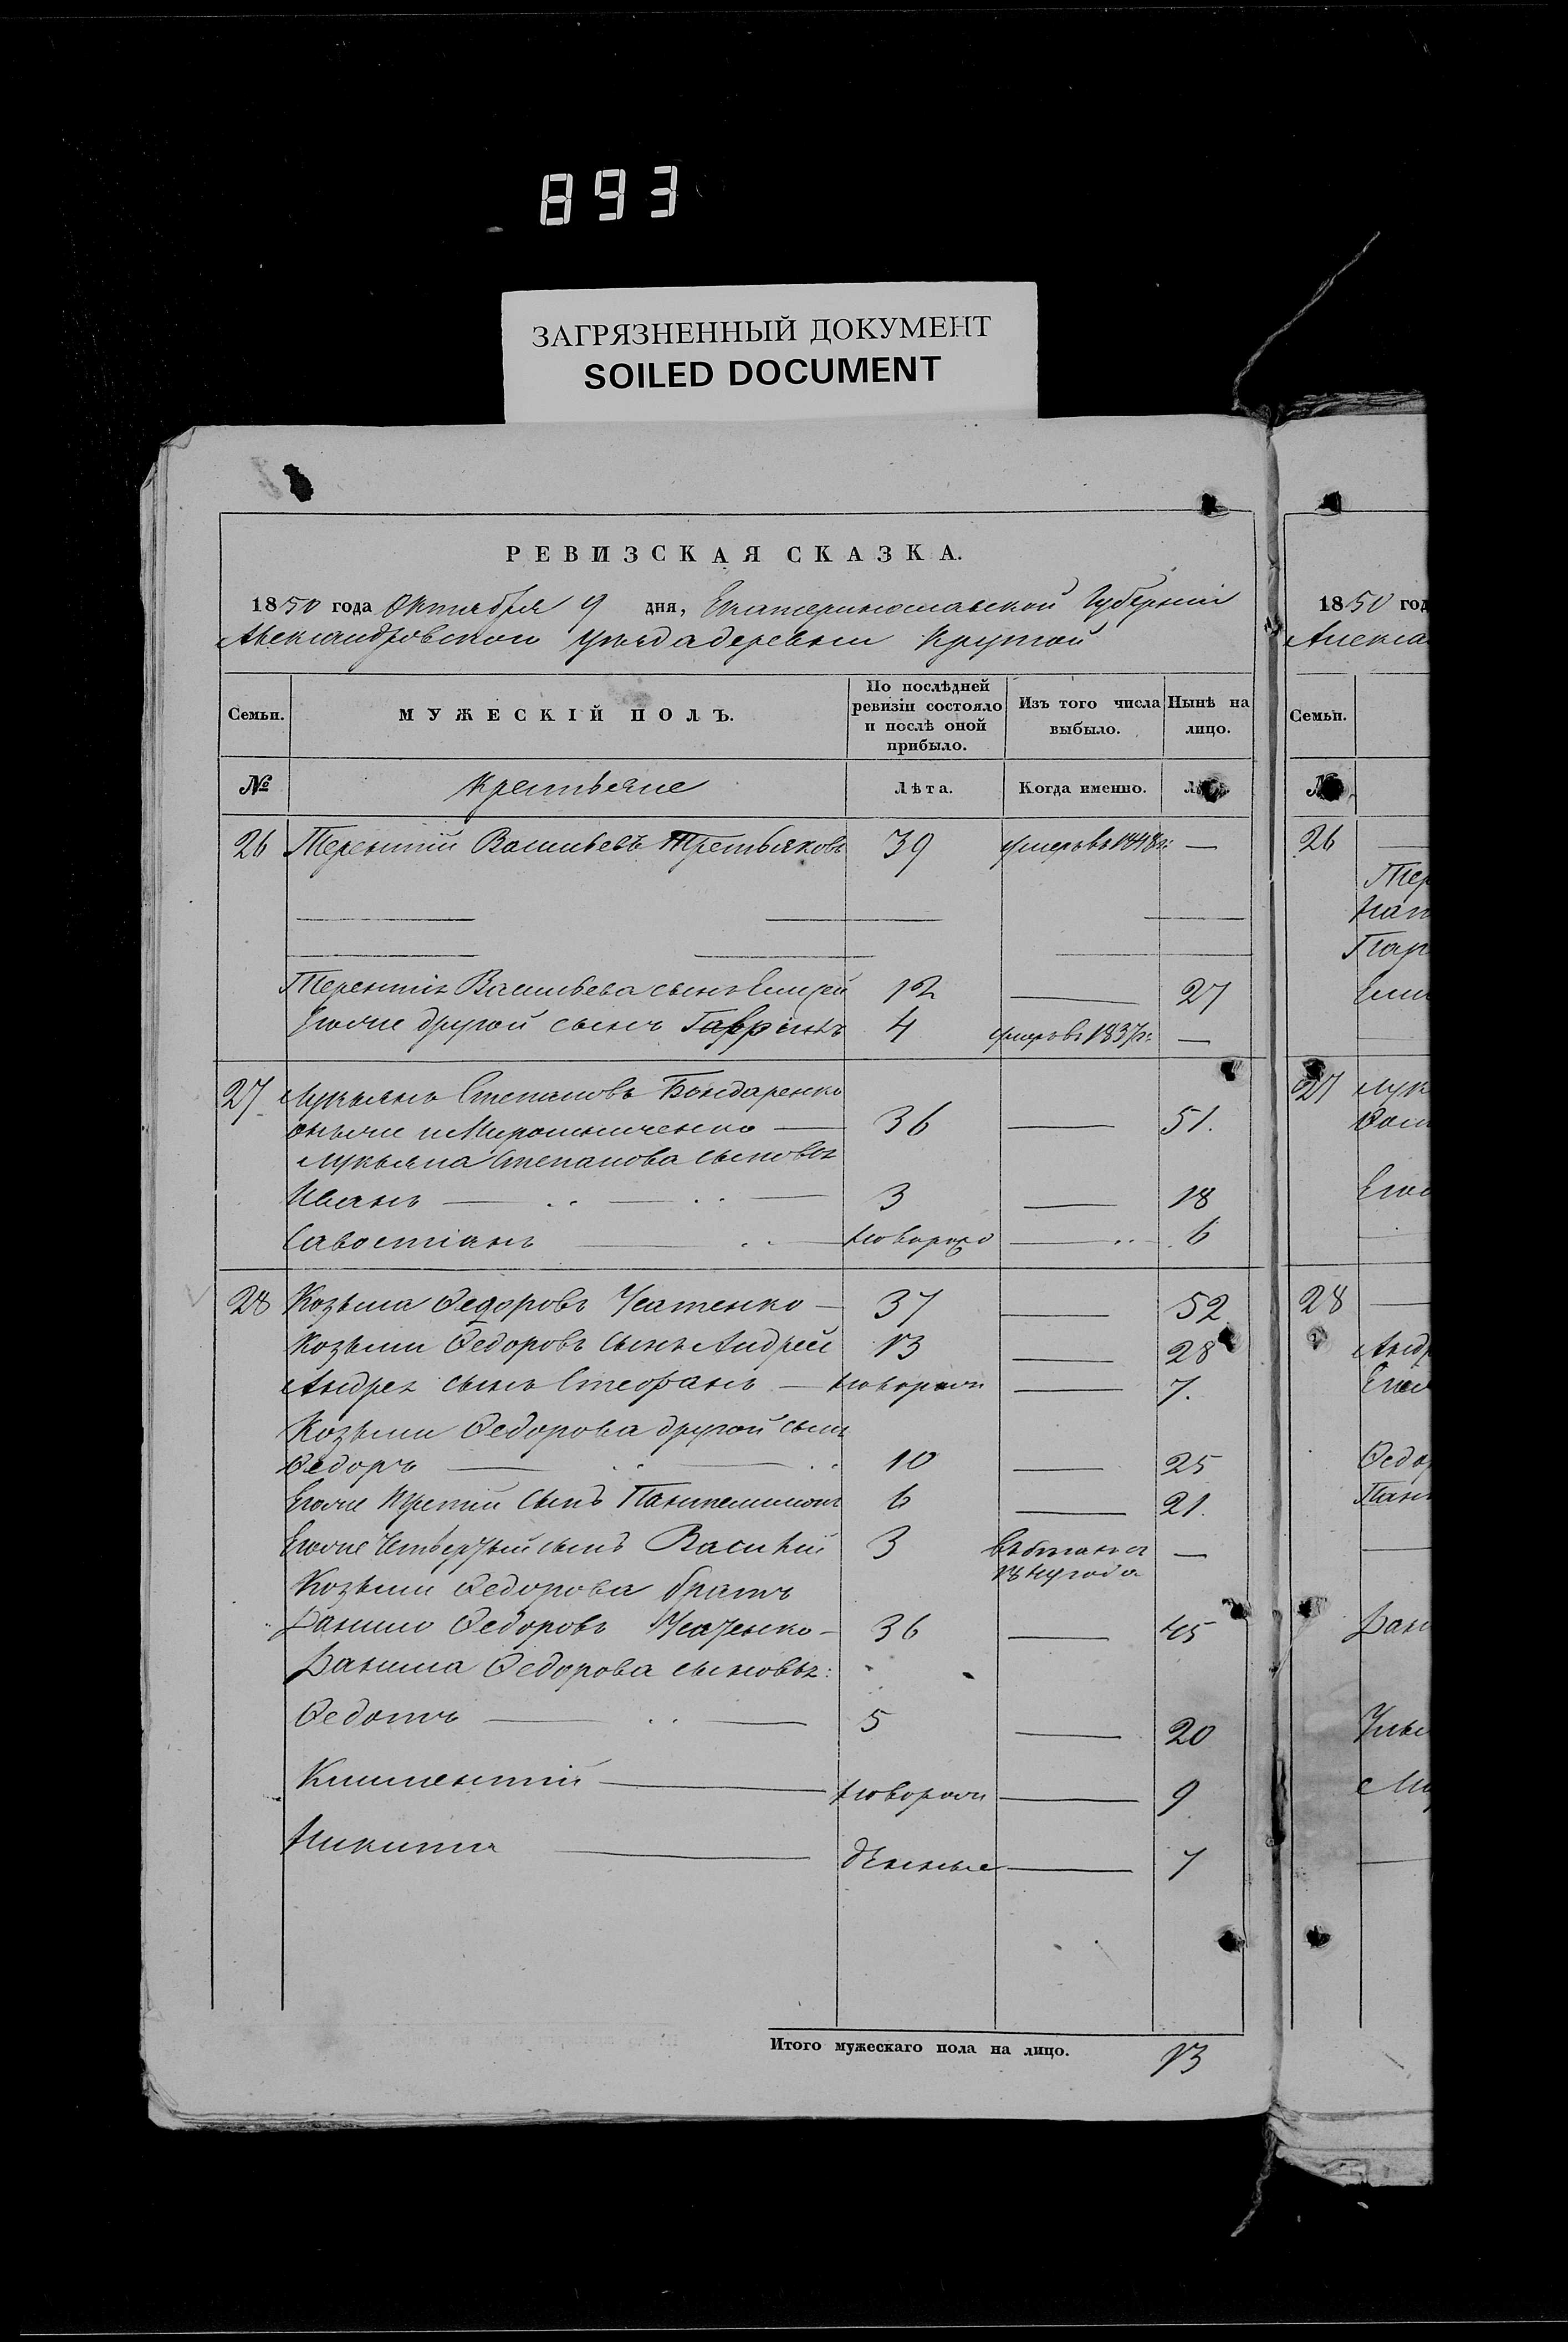 893
ЗАГРЯЗНЕННЫЙ ДОКУМЕНТ
SOILED DOCUMENT
РЕВИЗСКАЯ СКАЗКА.
1850 года Октября 9 дня, Екатеринославской Губернии
Александровского уезда деревни Крутой
Семьи. МУЖЕСКІЙ ПОЛЪ. По послѣдней ревизіи состояло и послѣ оной прибыло. Изъ того числа выбыло. Нынѣ на лицо.
№ крестьяне Лѣта. Когда именно.
26 Терентий Васильевъ Третьяковъ 39 умеръ въ 1848 г: —
Терентія Васильева сынъ Елисей 12 — 27
Его же другой сынъ 4 умеръ въ 1837 г: —
27 Лукьянъ Степановъ Бондаренко
онъ же и Мирошниченко — 36 — 51.
Лукьяна Степанова сыновья
Иванъ — 3 — 18
Савостіанъ — новорожд — 6
28 Козьма Федоровъ Усатенко — 37 — 52
Козьмы Федоровъ сынъ Андрей 13 — 28
Андрея сынъ Стефанъ — новорож — 7.
Козьмы Федорова другой сынъ
Федоръ — 10 — 25
Его же третий сынъ Пантелимонъ 6 — 21.
Его же четвертый сынъ Василий 3 —
Козьмы Федорова братъ
Данило Федоровъ Усатенко — 36 — 45
Данила Федорова сыновья:
Федотъ — 5 — 20
Климентий — новорож — 9
Никита — денные — 7
Итого мужескаго пола на лицо. 13
1850 год
Алекса
Семьи.
№
26
Тер
Нап
Пар
Ели
27 Лук
Его
28
Андр
Федо
Пан
Дан
Улья